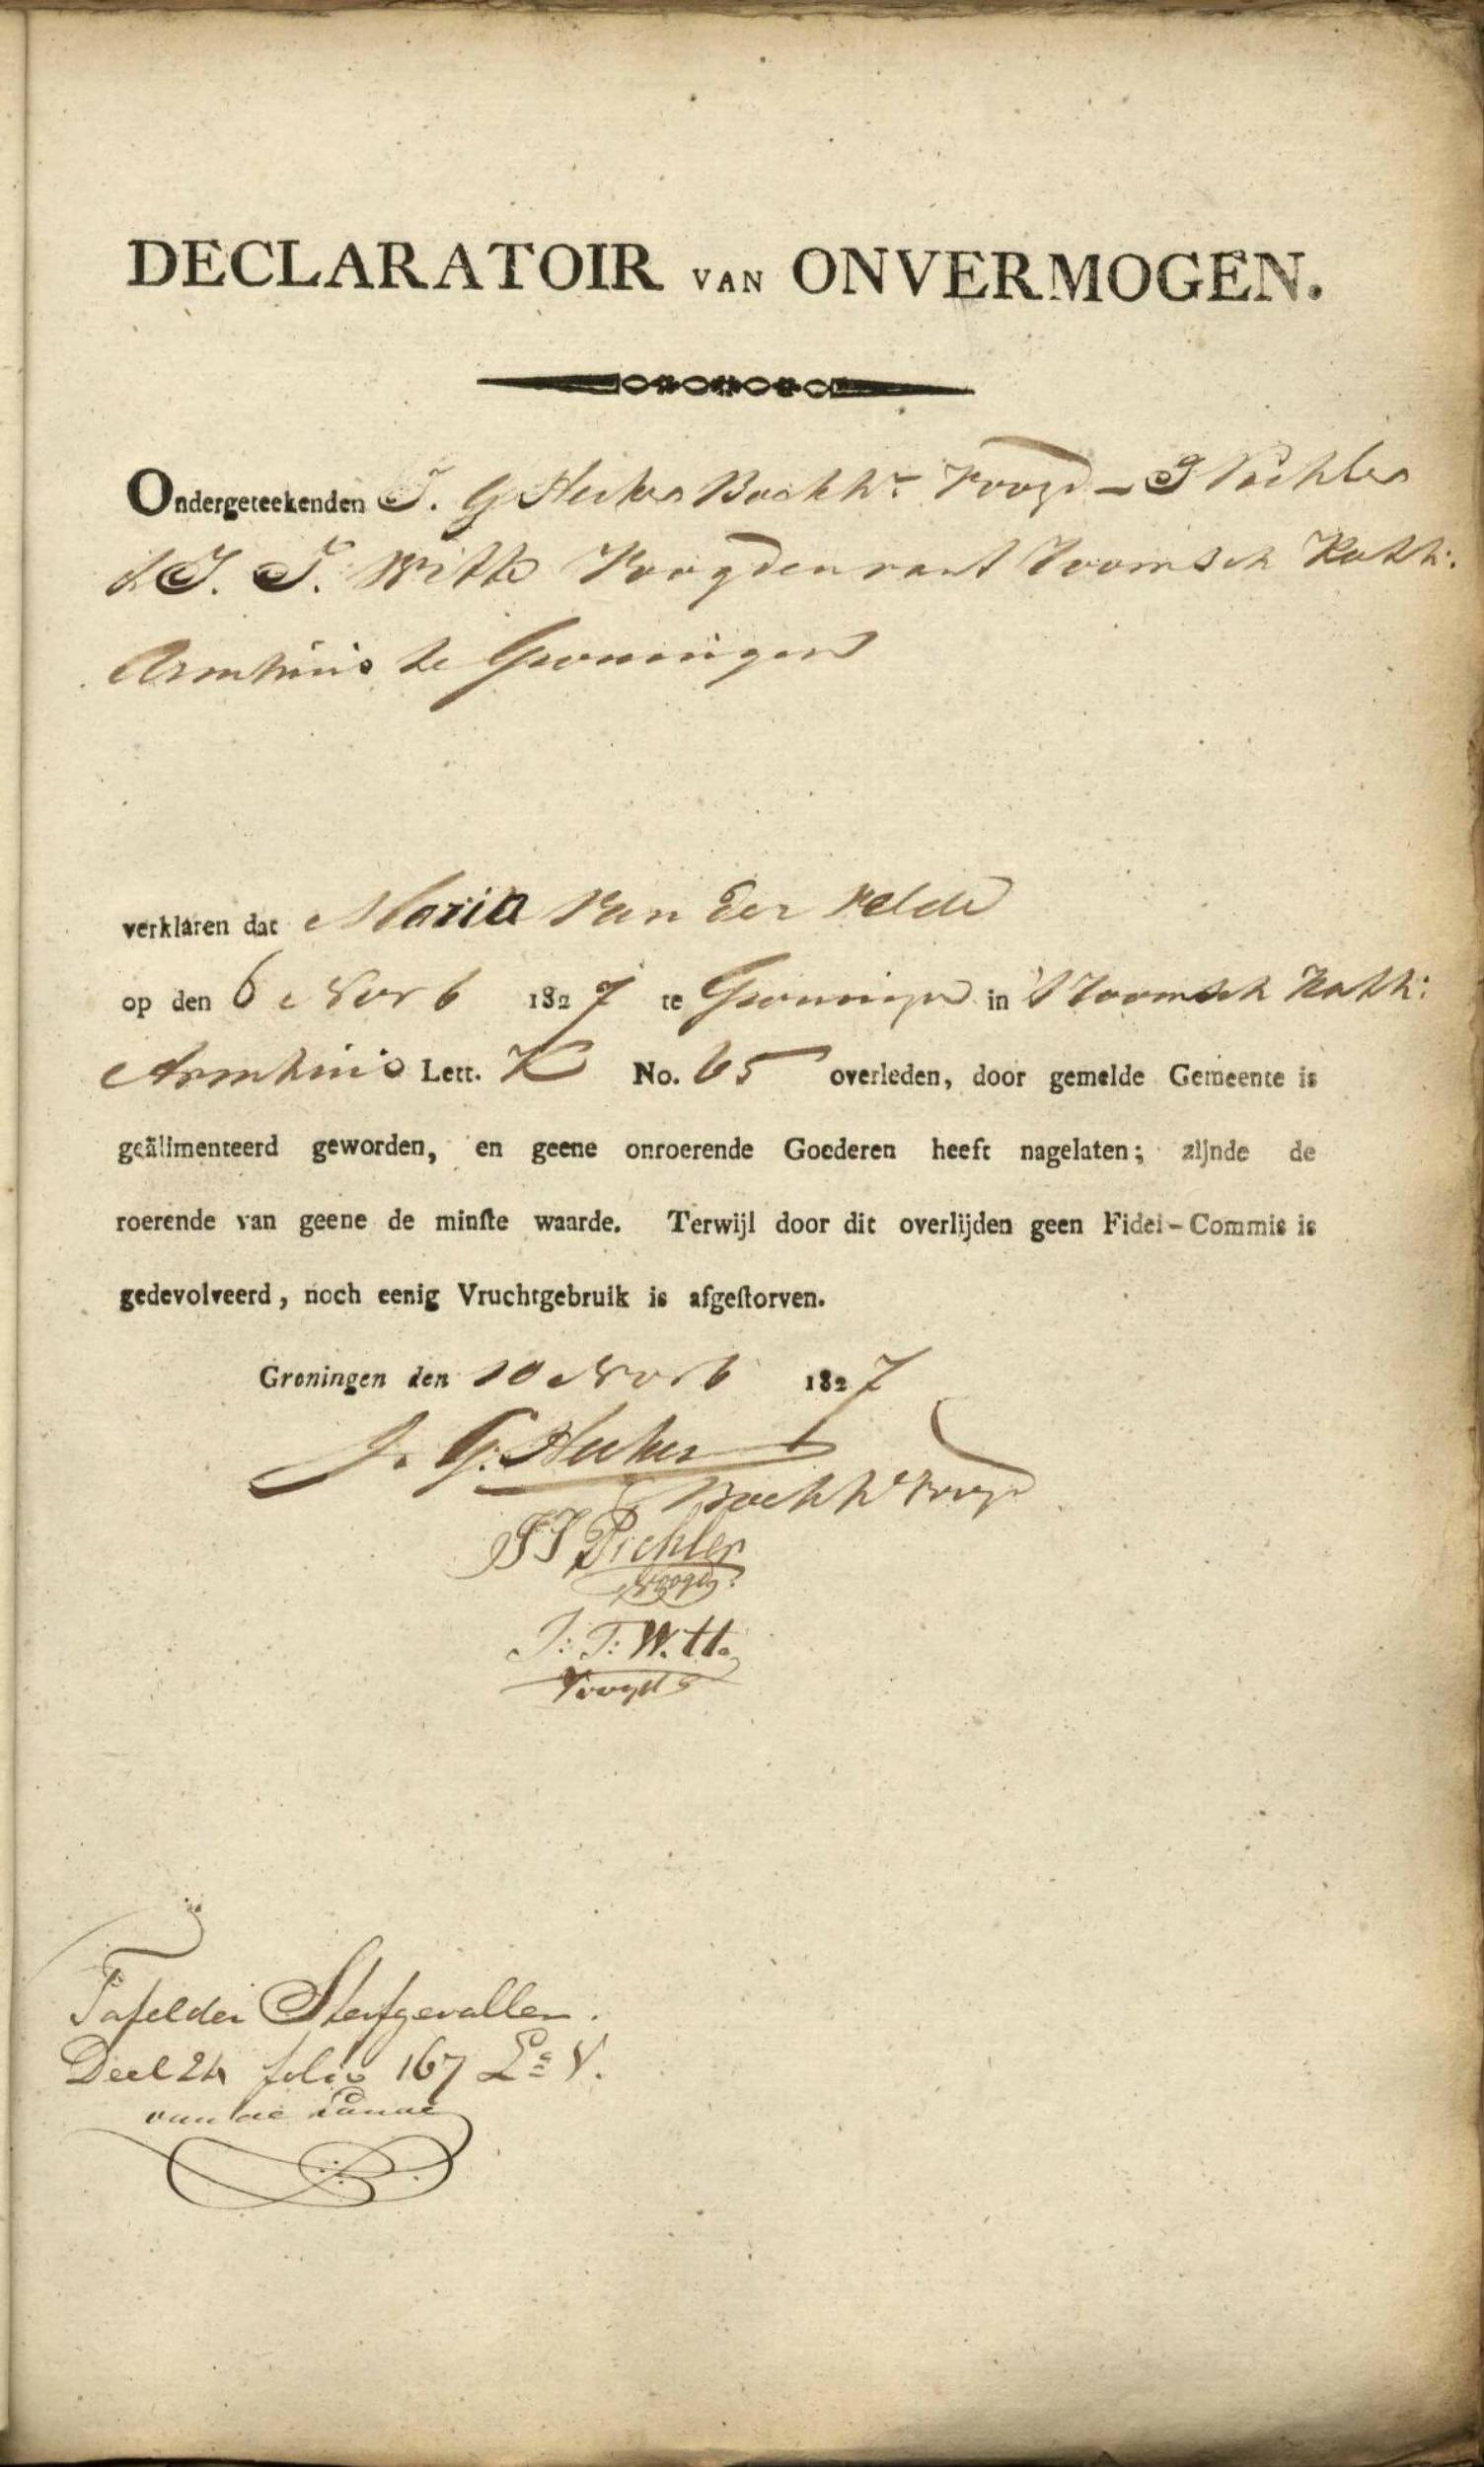 DECLARATOIR VAN ONVERMOGEN.
Ondergeteekenden J. G Heckers Boekhr Voogd – J Pichler
& J. F. Witte Voogden van't Roomsch Kath:
Armhuis te Groningen
verklaren dat Maria van der velde
op den 6 Novb 1827 te Groningen in 't Roomsch Kath:
Armhuis Lett. K No. 65 overleden, door gemelde Gemeente is
geälimenteerd geworden, en geene onroerende Goederen heeft nagelaten; zijnde de
roerende van geene de minſte waarde. Terwijl door dit overlijden geen Fidei-Commis is
gedevolveerd, noch eenig Vruchtgebruik is afgeſtorven.
Groningen den 10 Novb 1827
J. G. Heckers
Boekhr Voogd
Pichler
Voogd
J: F: Witte
Voogd
Tafel der Sterfgevallen.
Deel 24 folio 167 La V.